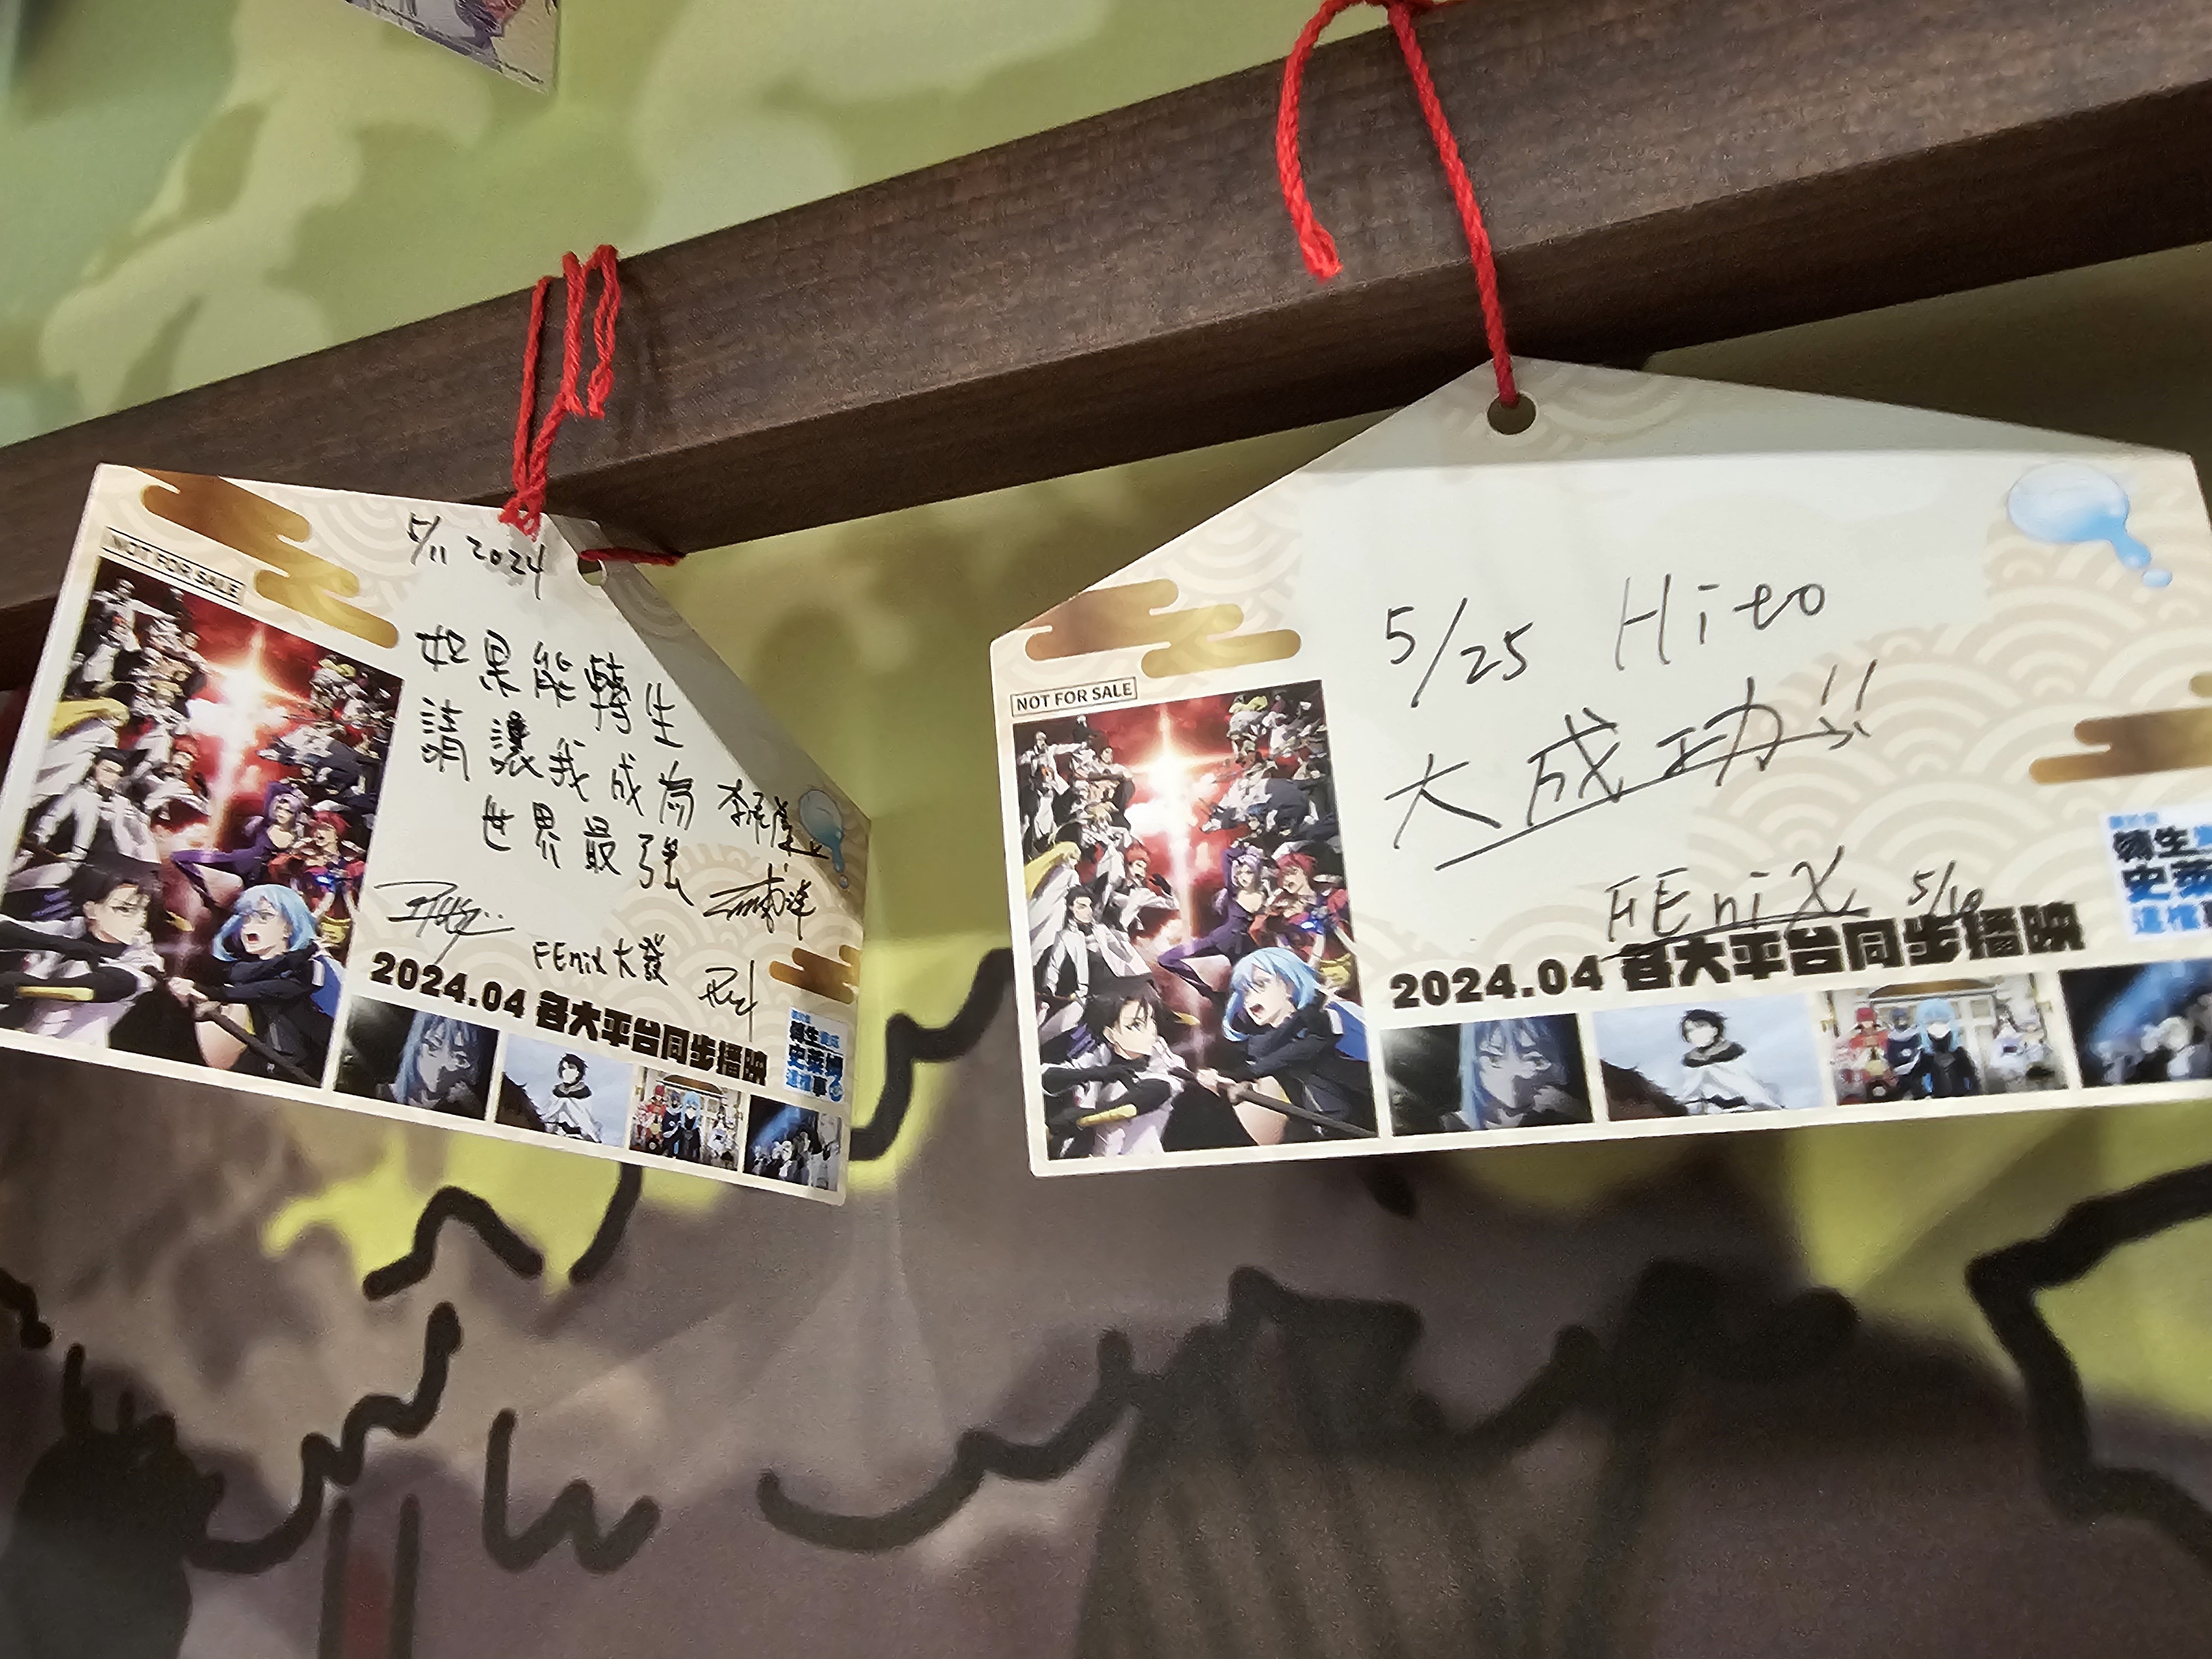 NOT FOR SALE
5/11 2024
如果能轉生
請讓我成為
世界最強
FEniX大發
2024.04 各大平台同步播映
轉生變成
史萊姆
這檔事
NOT FOR SALE
5/25 Hito
大成功!!
FEniX 5/10
2024.04 各大平台同步播映
轉生
史萊
這檔